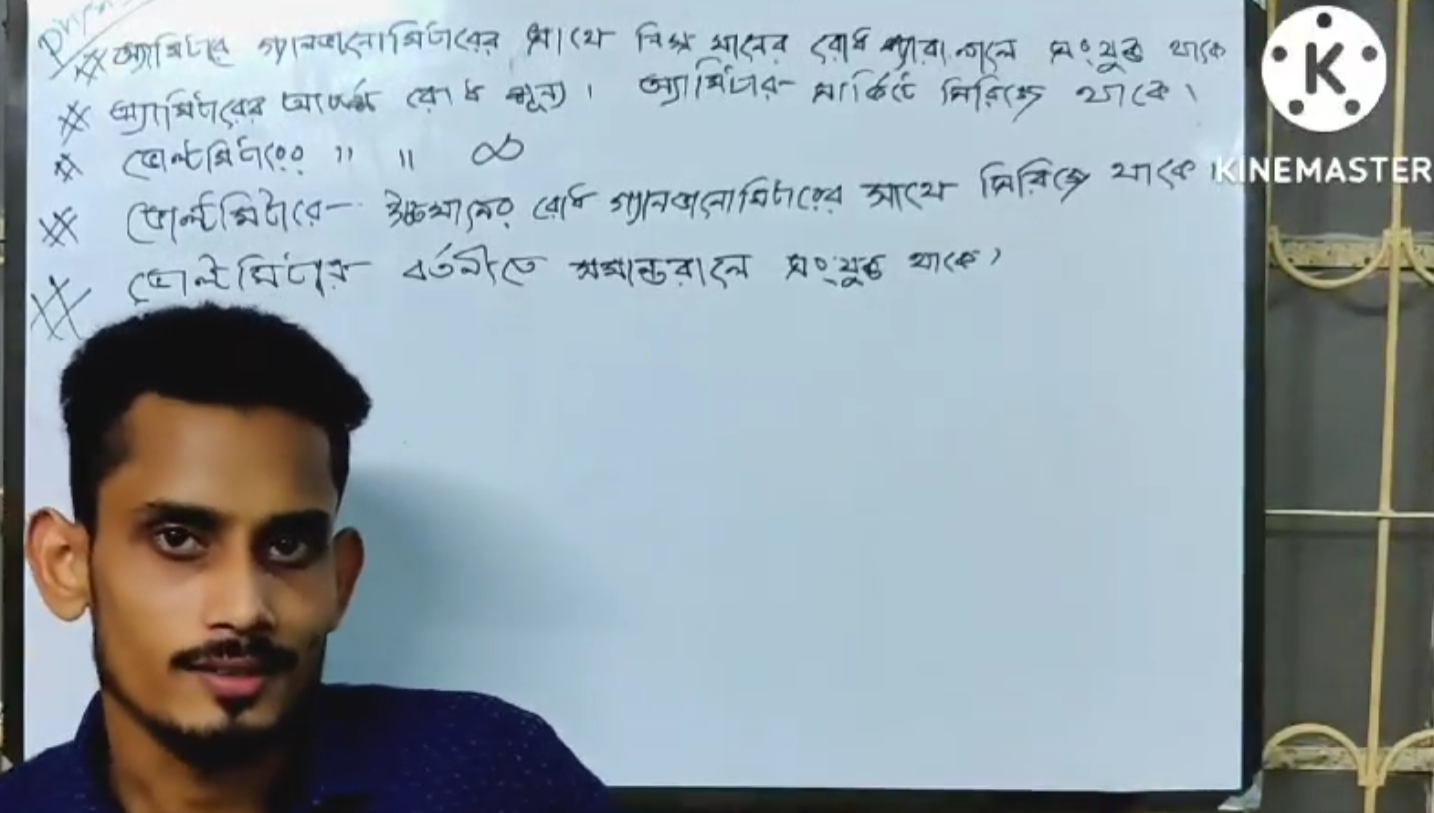 Phy
** অ্যামিটারে গ্যালভানোমিটারের সাথে নিম্ন মানের রোধ প্যারালালে সংযুক্ত থাকে
* অ্যামিটারের আদর্শ রোধ শূন্য। অ্যামিটার- সার্কিটে সিরিজে থাকে।
* ভোল্টমিটারের " " ∞
** ভোল্টমিটারে- উচ্চমানের রোধ গ্যালভানোমিটারের সাথে সিরিজে থাকে।
** ভোল্টমিটার বর্তনীতে সমান্তরালে সংযুক্ত থাকে,
K
KINEMASTER